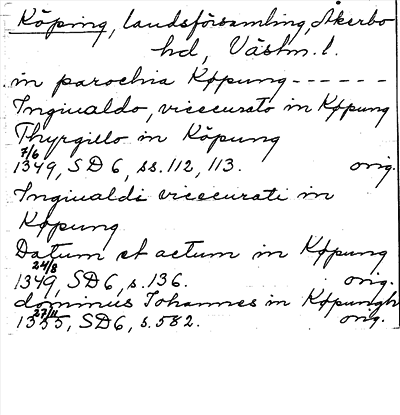 Köping, landsförsamling, Åkerbo
hd, Västm.l.
in parochia Køpung ------
Ingiualdo, vicecurato in Køpung
Thyrgillo in Köpung
7/6
1349, SD 6, ss. 112, 113. orig.
Ingiualdi vicecurati in
Køpung
Datum et actum in Køpung
24/8
1349, SD 6, s. 136. orig.
dominus Johannes in Køpungh
27/11
1355, SD6, s. 582. orig.